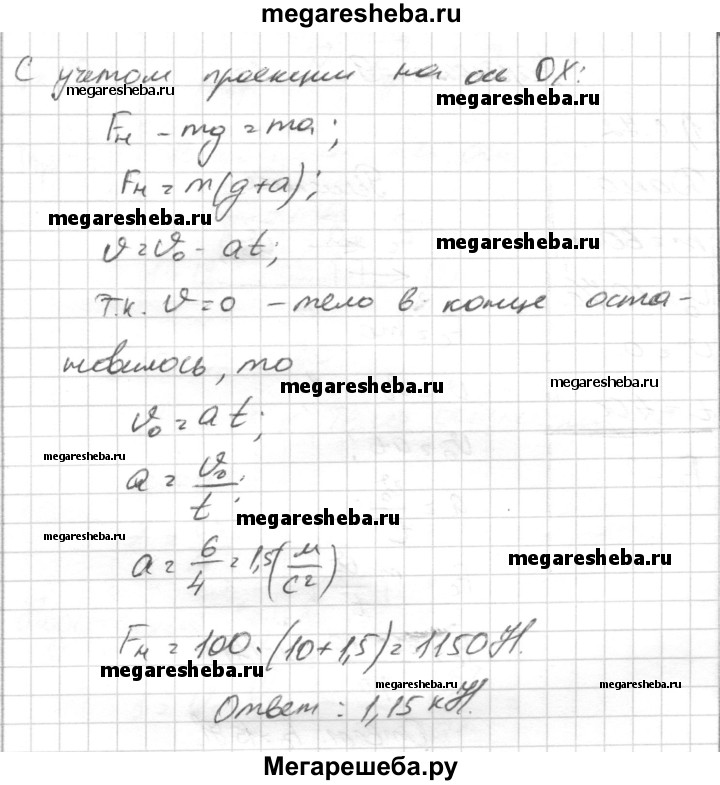 megaresheba.ru
С учетом проекции на ось OX:
megaresheba.ru
megaresheba.ru
Fн - mg = ma;
Fн = m(g+a);
megaresheba.ru
megaresheba.ru
υ = υ₀ - at;
Т.к. υ = 0 - тело в конце оста-
новилось, то
megaresheba.ru
megaresheba.ru
υ₀ = at;
megaresheba.ru
a = υ₀/t;
megaresheba.ru
megaresheba.ru
megaresheba.ru
a = 6/4 = 1,5 (м/с²)
Fн = 100·(10+1,5) = 1150 Н.
megaresheba.ru
megaresheba.ru
megaresheba.ru
Ответ: 1,15 кН.
Мегарешеба.ру